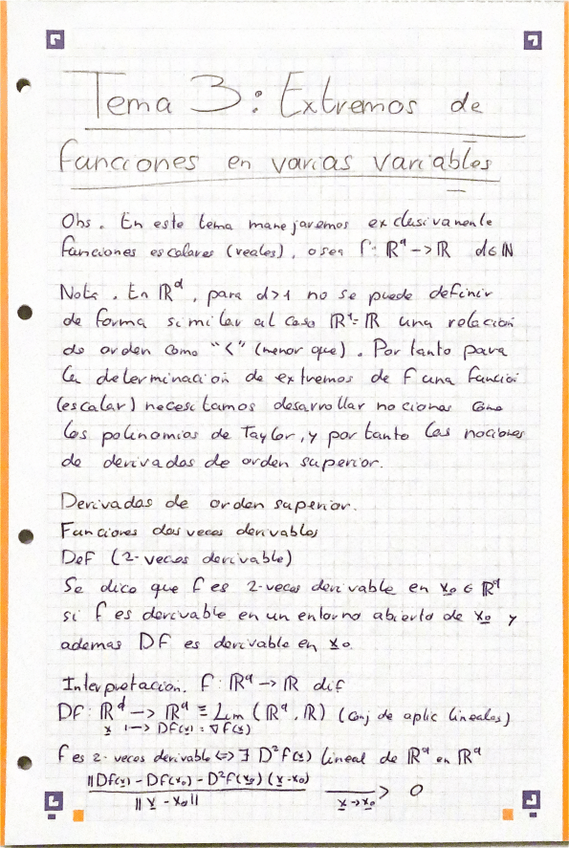 Tema 3: Extremos de
funciones en varias variables
Obs. En este tema manejaremos exclusivamente
funciones escalares (reales), o sea f: ℝᵈ -> ℝ d∈ℕ
Nota. En ℝᵈ, para d>1 no se puede definir
de forma similar al caso ℝ¹=ℝ una relación
de orden como "<" (menor que). Por tanto para
la determinación de extremos de f una función
(escalar) necesitamos desarrollar nociones como
los polinomios de Taylor, y por tanto las nociones
de derivadas de orden superior.
Derivadas de orden superior.
Funciones dos veces derivables
Def (2-veces derivable)
Se dice que f es 2-veces derivable en x₀ ∈ ℝᵈ
si f es derivable en un entorno abierto de x₀ y
ademas Df es derivable en x₀.
Interpretacion. f: ℝᵈ -> ℝ dif
Df: ℝᵈ -> ℝᵈ ≡ Lin (ℝᵈ, ℝ) (conj de aplic lineales)
x |-> Df(x) = ∇f(x)
f es 2-veces derivable <=> ∃ D²f(x) lineal de ℝᵈ en ℝᵈ
||Df(x) - Df(x₀) - D²f(x₀)(x-x₀)
|| x - x₀ || x->x₀ > 0